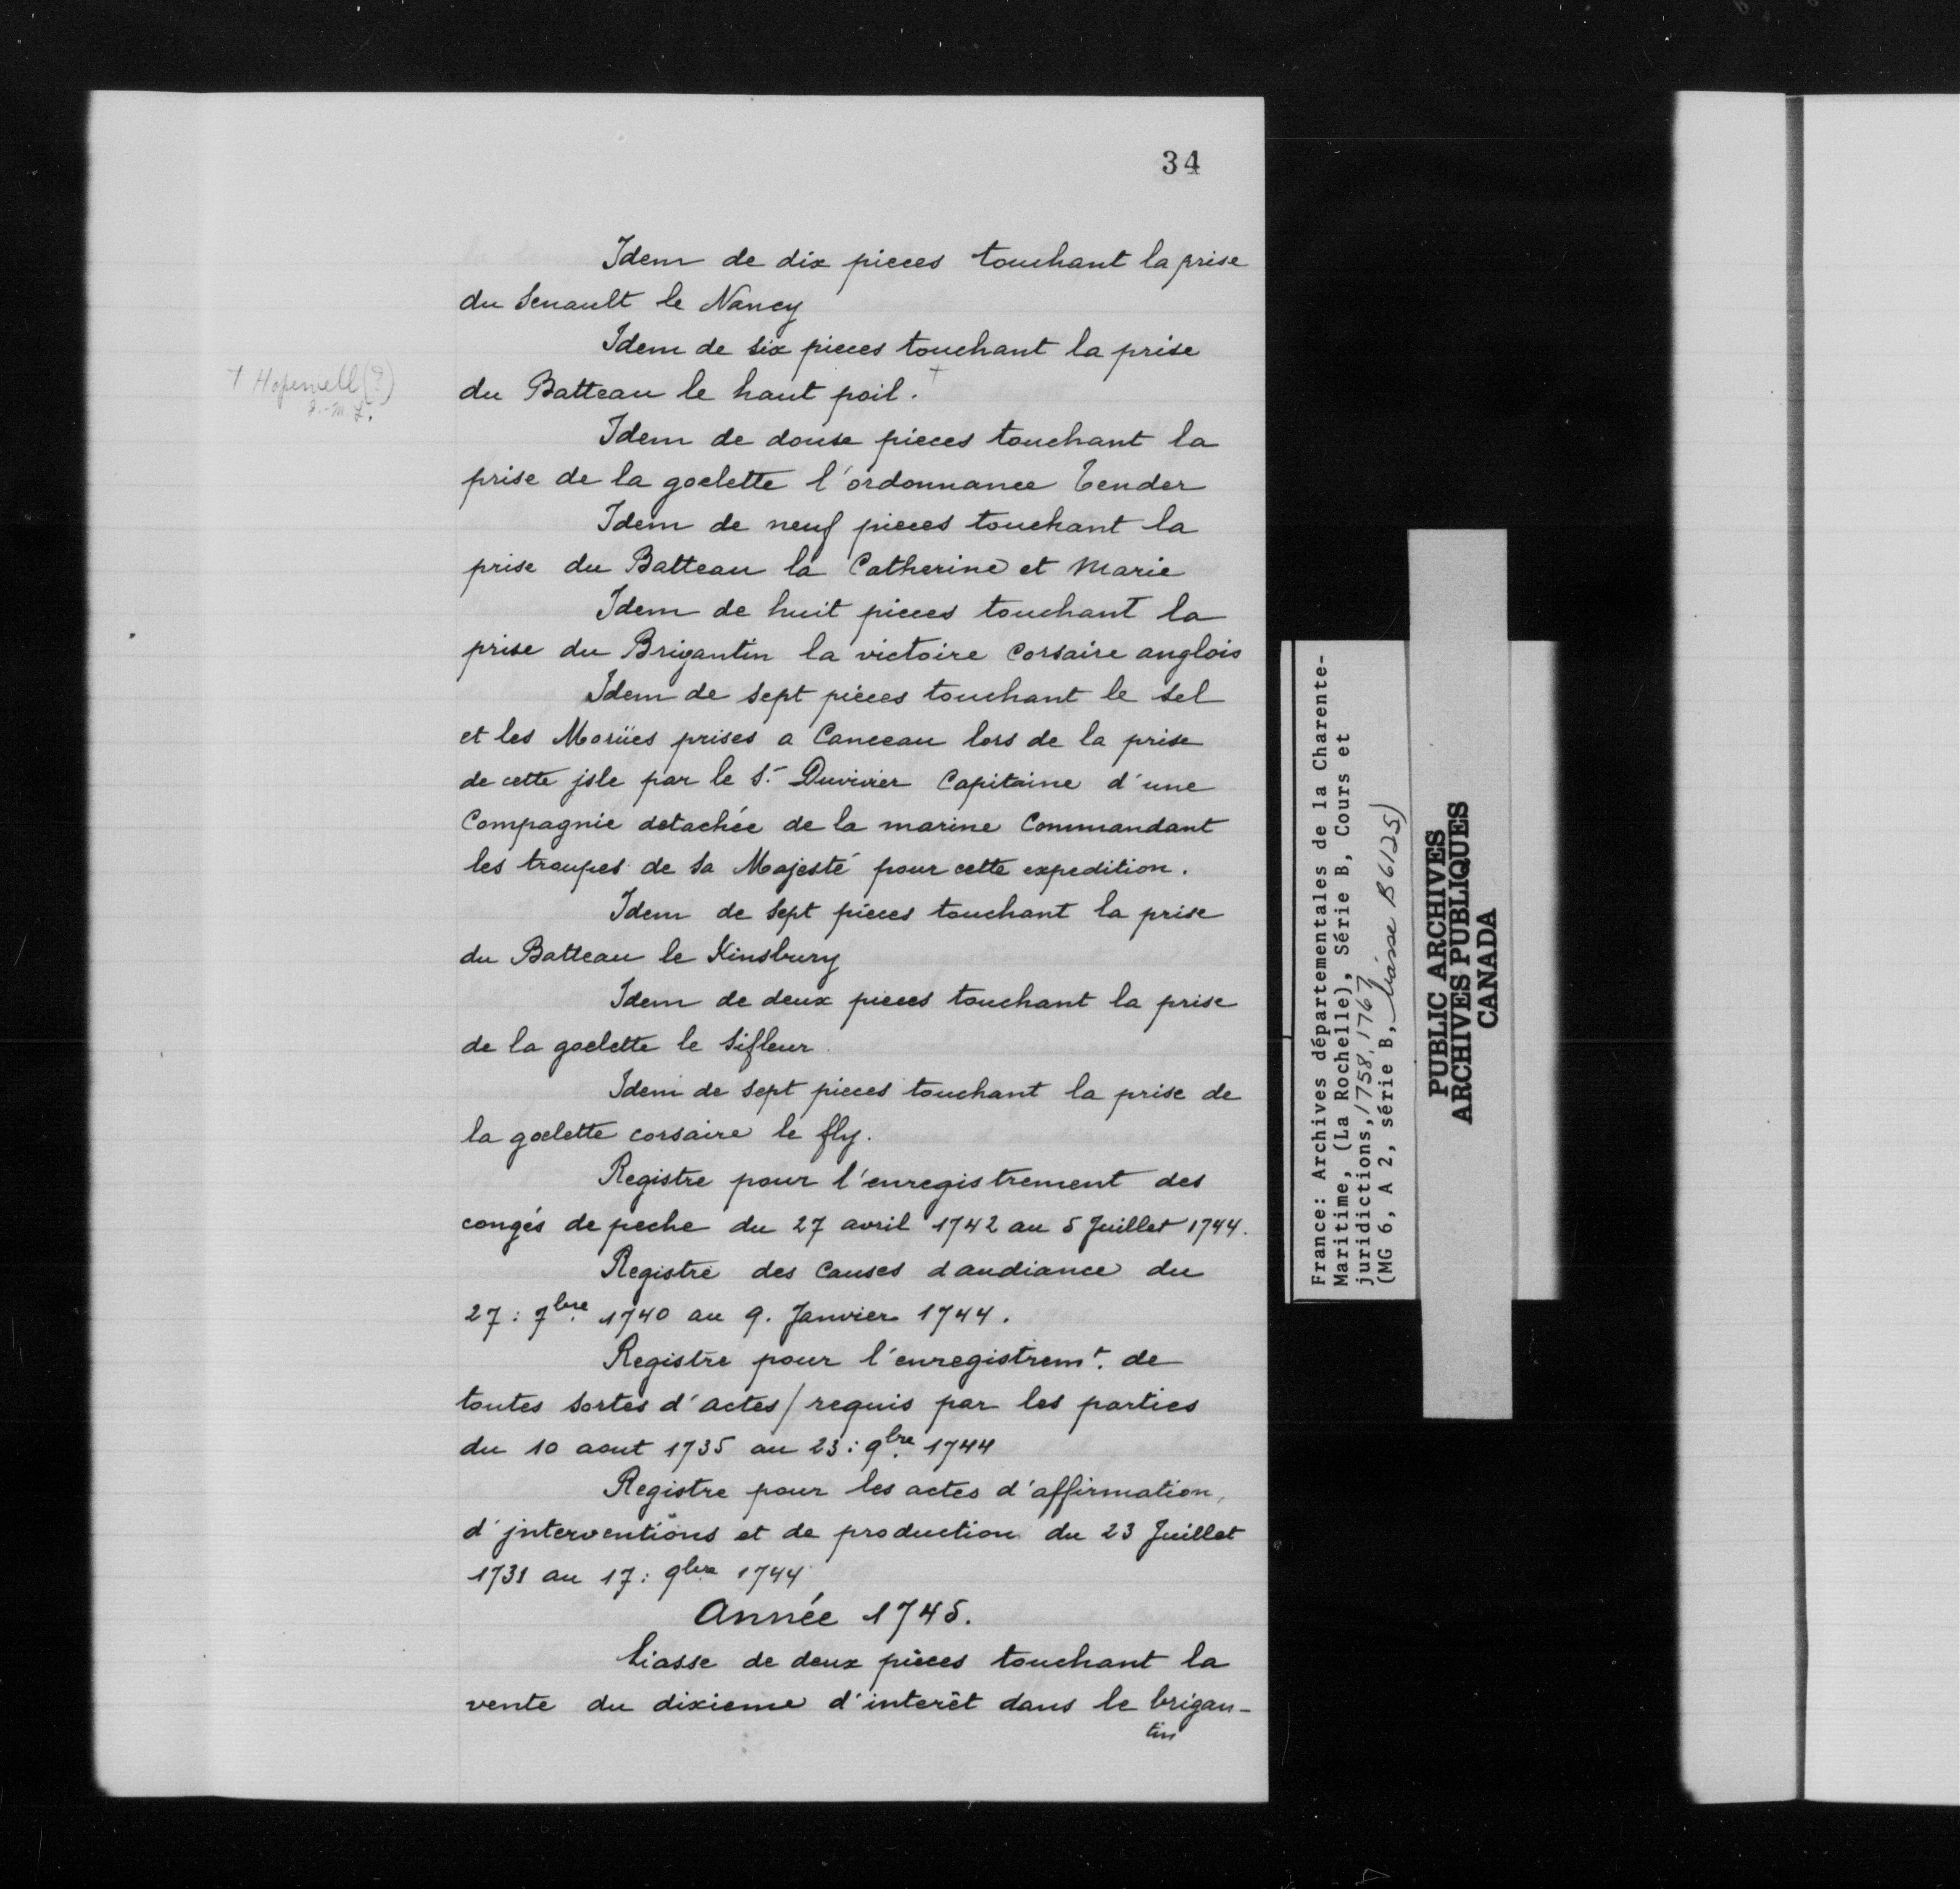 34
Idem de dix pieces touchant la prise
du Senault le Nancy
Idem de six pieces touchant la prise
† Hopewell (?)
du Batteau le haut poil. †
Idem de douse pieces touchant la
prise de la goelette l'ordonnance Tender
Idem de neuf pieces touchant la
prise du Batteau la Catherine et Marie
Idem de huit pieces touchant la
prise du Brigantin la victoire Corsaire anglois
Idem de sept pièces touchant le sel
et les Morües prises a Canceau lors de la prise
de cette jsle par le S.r Duvivier Capitaine d'une
Compagnie detachée de la marine Commandant
les troupes de sa Majesté pour cette expedition.
Idem de sept pièces touchant la prise
du Batteau le Kinsbury
Idem de deux pieces touchant la prise
de la goelette le Sifleur
Idem de sept pieces touchant la prise de
la goelette corsaire le fly.
Registre pour l'enregistrement des
congés de peche du 27 avril 1742 au 5 Juillet 1744.
Registre des Causes daudiance du
27: 7bre. 1740 au 9. Janvier 1744.
Registre pour l'enregistremt. de
toutes sortes d'actes/requis par les parties
du 10 aout 1735 au 23: 9bre. 1744
Registre pour les actes d'affirmation,
d'jnterventions et de production du 23 Juillet
1731 au 17: 9bre 1744
Année 1745.
Liasse de deux pièces touchant la
vente du dixieme d'interêt dans le brigan-
tin
France: Archives départementales de la Charente-
Maritime, (La Rochelle), Série B, Cours et
juridictions, 1758, 1767
(MG 6, A 2, série B, liasse B6125)
PUBLIC ARCHIVES
ARCHIVES PUBLIQUES
CANADA